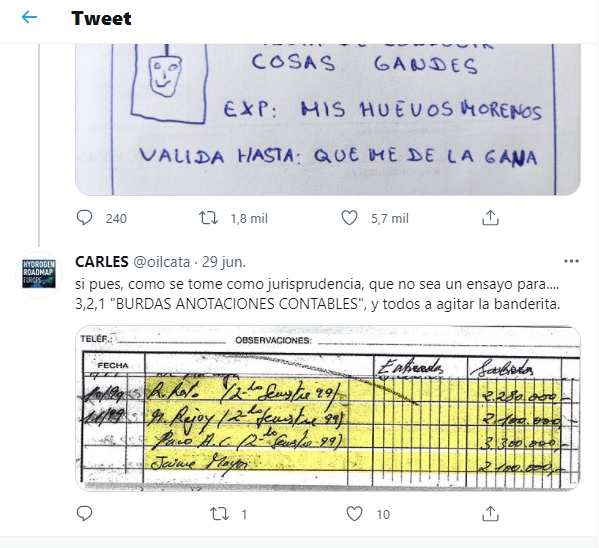 Tweet
COSAS GANDES
EXP: MIS HUEVOS MORENOS
VALIDA HASTA: QUE ME DE LA GANA
240 1,8 mil 5,7 mil
HYDROGEN
ROADMAP
EUROPE
CARLES @oilcata · 29 jun.
si pues, como se tome como jurisprudencia, que no sea un ensayo para....
3,2,1 "BURDAS ANOTACIONES CONTABLES", y todos a agitar la banderita.
TELÉF.: OBSERVACIONES:
FECHA Entradas Salidas
10/99 R. Rato (2-do Semestre 99) 2.280.000,-
11/99 M. Rajoy (2-do Semestre 99) 2.100.000,-
Paco A.C. (2-do Semestre 99) 3.300.000,-
Jaime Mayor 2.100.000,-
1 10